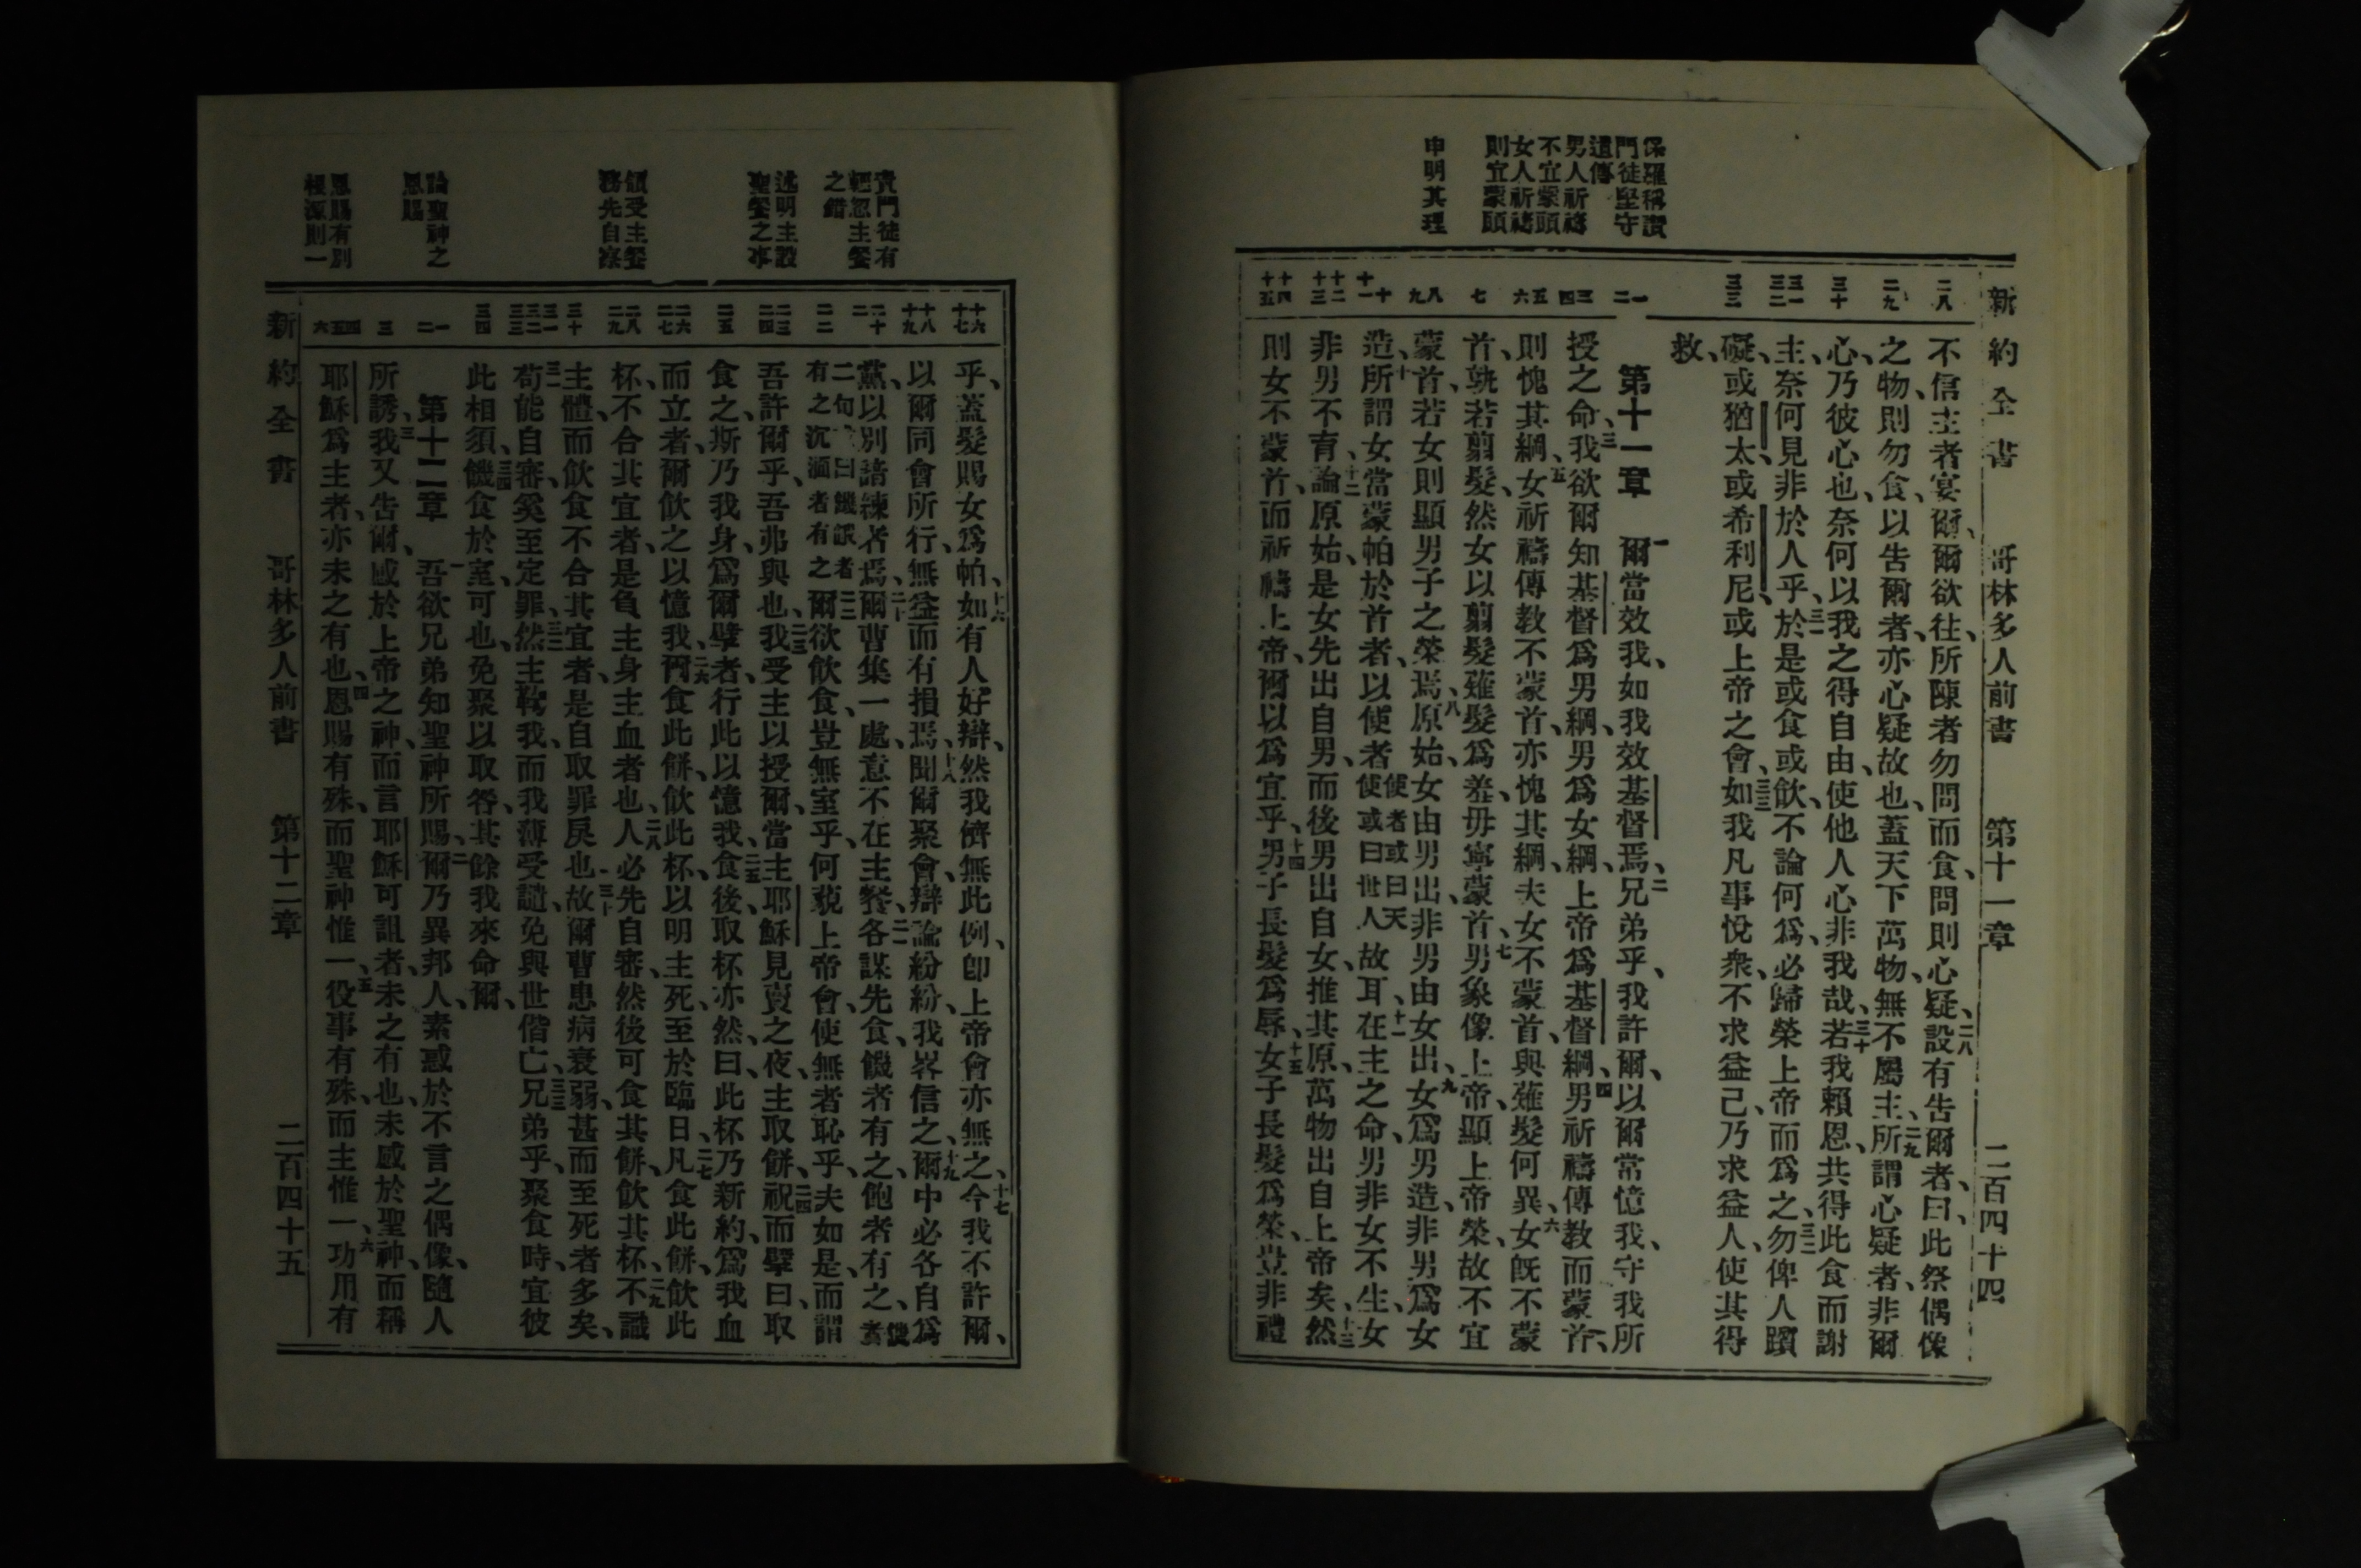 新約全書 哥林多人前書 第十一章 二百四十四
保羅稱讚
門徒堅守
遺傳
男人祈禱
不宜蒙頭
女人祈禱
則宜蒙頭
申明其理
二八
二九
三十
三一
三二
三三
一
二
三
四
五
六
七
八
九
十
十一
十二
十三
十四
十五
不信主者宴爾、爾欲往、所陳者勿問而食、問則心疑、二八設有告爾者、曰、此祭偶像
之物、則勿食、以告爾者、亦心疑故也、蓋天下萬物、無不屬主、二九所謂心疑者、非爾
心、乃彼心也、奈何以我之得自由、使他人心非我哉、三十若我賴恩、共得此食而謝
主、奈何見非於人乎、三一於是或食或飲、不論何爲、必歸榮上帝而爲之、三二勿俾人躓
礙、或猶太、或希利尼、或上帝之會、三三如我凡事悅衆、不求益己、乃求益人、使其得
救、
第十一章 一爾當效我、如我效基督焉、二兄弟乎、我許爾、以爾常憶我、守我所
授之命、三我欲爾知基督爲男綱、男爲女綱、上帝爲基督綱、四男祈禱傳教而蒙首、
則愧其綱、五女祈禱傳教不蒙首、亦愧其綱、夫女不蒙首、與薙髮何異、六女旣不蒙
首、孰若翦髮、然女以翦髮薙髮爲羞、毋寧蒙首、七男象像上帝、顯上帝榮、故不宜
蒙首、若女則顯男子之榮焉、八原始、女由男出、非男由女出、九女爲男造、非男爲女
造、十所謂女當蒙帕於首者、以使者使者或曰天使或曰世人故耳、十一在主之命、男非女不生、女
非男不育、十二論原始、是女先出自男、而後男出自女、推其原、萬物出自上帝矣、十三然
則女不蒙首、而祈禱上帝、爾以爲宜乎、十四男子長髮爲辱、十五女子長髮爲榮、豈非禮
責門徒有
輕忽主餐
之錯
述明主設
聖餐之事
領受主餐
務先自察
論聖神之
恩賜
恩賜有別
根源則一
十六
十七
十八
十九
二十
二一
二二
二三
二四
二五
二六
二七
二八
二九
三十
三一
三二
三三
三四
一
二
三
四
五
六
乎、蓋髮賜女爲帕、十六如有人好辯、然我儕無此例、卽上帝會亦無之、十七今我不許爾、
以爾同會所行、無益而有損焉、十八聞爾聚會、辯論紛紛、我畧信之、十九爾中必各自爲
黨、以別諳練者焉、二十爾曹集一處、意不在主餐、二一各謀先食、饑者有之、飽者有之、饑者
二句或曰饑餓者有之沉湎者有之二二爾欲飲食、豈無室乎、何藐上帝會、使無者恥乎、夫如是、而謂
吾許爾乎、吾弗與也、二三我受主以授爾、當主耶穌見賣之夜、主取餅、二四祝而擘曰、取
食之、斯乃我身、爲爾擘者、行此以憶我、二五食後、取杯亦然、曰、此杯乃新約、爲我血
而立者、爾飲之以憶我、二六爾食此餅、飲此杯、以明主死、至於臨日、二七凡食此餅、飲此
杯、不合其宜者、是負主身主血者也、二八人必先自審、然後可食其餅、飲其杯、二九不識
主體、而飲食不合其宜者、是自取罪戾也、三十故爾曹患病衰弱、甚而至死者多矣、
三一苟能自審、奚至定罪、三二然主鞫我、而我薄受譴、免與世偕亡、三三兄弟乎、聚食時、宜彼
此相須、三四饑食於室、可也、免聚以取咎、其餘我來命爾、
第十二章 一吾欲兄弟知聖神所賜、二爾乃異邦人、素惑於不言之偶像、隨人
所誘、三我又告爾、感於上帝之神、而言耶穌可詛者、未之有也、未感於聖神、而稱
耶穌爲主者、亦未之有也、四恩賜有殊、而聖神惟一、五役事有殊、而主惟一、六功用有
新約全書 哥林多人前書 第十二章 二百四十五